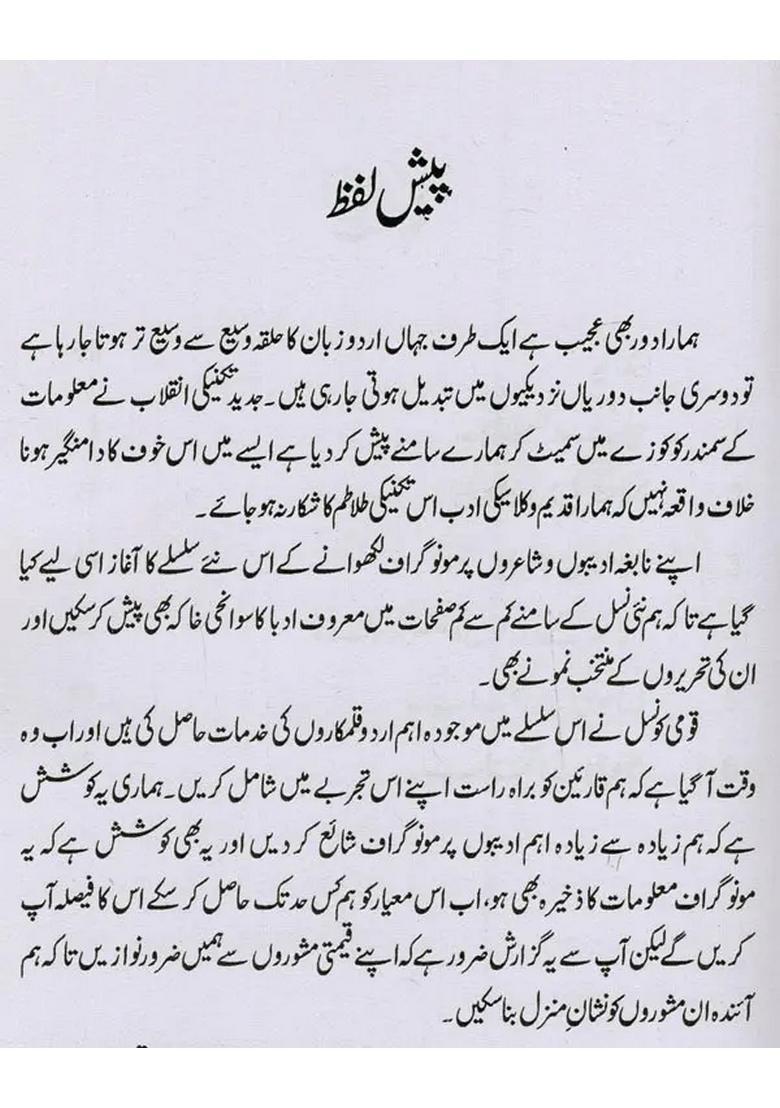 پیش لفظ
ہمارا دور بھی عجیب ہے ایک طرف جہاں اردو زبان کا حلقہ وسیع سے وسیع تر ہوتا جا رہا ہے
تو دوسری جانب دوریاں نزدیکیوں میں تبدیل ہوتی جا رہی ہیں۔ جدید تکنیکی انقلاب نے معلومات
کے سمندر کو کوزے میں سمیٹ کر ہمارے سامنے پیش کر دیا ہے ایسے میں اس خوف کا دامنگیر ہونا
خلاف واقعہ نہیں کہ ہمارا قدیم و کلاسیکی ادب اس تکنیکی طلاطم کا شکار نہ ہو جائے۔
اپنے نابغہ ادیبوں و شاعروں پر مونوگراف لکھوانے کے اس نئے سلسلے کا آغاز اسی لیے کیا
گیا ہے تا کہ ہم نئی نسل کے سامنے کم سے کم صفحات میں معروف ادبا کا سوانحی خاکہ بھی پیش کر سکیں اور
ان کی تحریروں کے منتخب نمونے بھی۔
قومی کونسل نے اس سلسلے میں موجودہ اہم اردو قلمکاروں کی خدمات حاصل کی ہیں اور اب وہ
وقت آ گیا ہے کہ ہم قارئین کو براہ راست اپنے اس تجربے میں شامل کریں۔ ہماری یہ کوشش
ہے کہ ہم زیادہ سے زیادہ اہم ادیبوں پر مونوگراف شائع کر دیں اور یہ بھی کوشش ہے کہ یہ
مونوگراف معلومات کا ذخیرہ بھی ہو، اب اس معیار کو ہم کس حد تک حاصل کر سکے اس کا فیصلہ آپ
کریں گے لیکن آپ سے یہ گزارش ضرور ہے کہ اپنے قیمتی مشوروں سے ہمیں ضرور نوازیں تا کہ ہم
آئندہ ان مشوروں کو نشانِ منزل بنا سکیں۔